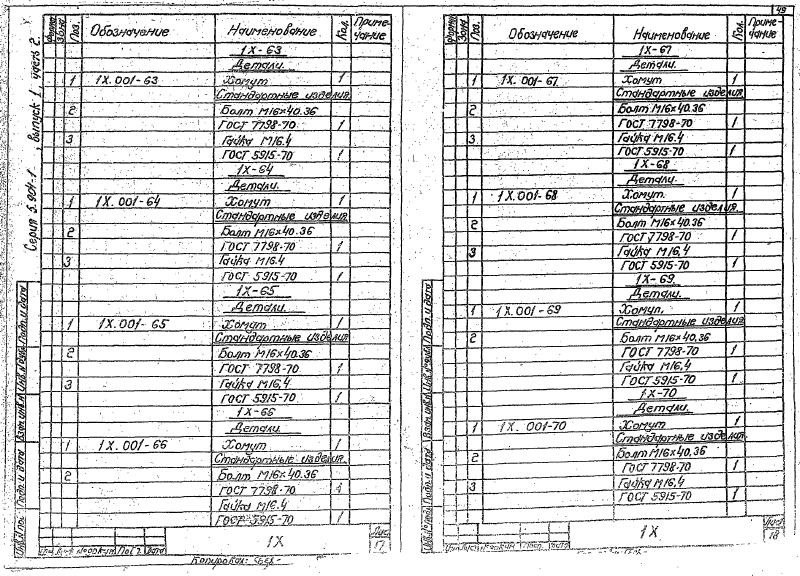 49
Серия 5.901-1, выпуск 1, часть 2.
Формат Зона Поз. Обозначение Наименование Кол. Примечание
1Х-63
Детали.
1 1Х.001-63 Хомут 1
Стандартные изделия.
2 Болт М16×40.36
ГОСТ 7798-70 1
3 Гайка М16.4
ГОСТ 5915-70 1
1Х-64
Детали.
1 1Х.001-64 Хомут 1
Стандартные изделия
2 Болт М16×40.36
ГОСТ 7798-70 1
3 Гайка М16.4
ГОСТ 5915-70 1
1Х-65
Детали.
1 1Х.001-65 Хомут 1
Стандартные изделия
2 Болт М16×40.36
ГОСТ 7798-70 1
3 Гайка М16.4
ГОСТ 5915-70 1
1Х-66
Детали.
1 1Х.001-66 Хомут 1
Стандартные изделия.
2 Болт М16×40.36
ГОСТ 7798-70 1
Гайка М16.4
ГОСТ 5915-70 1
1Х
Лист
17
Копировал:
Формат Зона Поз. Обозначение Наименование Кол. Примечание
1Х-67
Детали.
1 1Х.001-67 Хомут 1
Стандартные изделия.
2 Болт М16×40.36
ГОСТ 7798-70 1
3 Гайка М16.4
ГОСТ 5915-70 1
1Х-68
Детали.
1 1Х.001-68 Хомут. 1
Стандартные изделия.
2 Болт М16×40.36
ГОСТ 7798-70 1
3 Гайка М16.4
ГОСТ 5915-70 1
1Х-69.
Детали.
1 1Х.001-69 Хомут. 1
Стандартные изделия
2 Болт М16×40.36
ГОСТ 7798-70 1
Гайка М16.4
ГОСТ 5915-70 1
1Х-70
Детали.
1 1Х.001-70 Хомут 1
Стандартные изделия
2 Болт М16×40.36
ГОСТ 7798-70 1
3 Гайка М16.4
ГОСТ 5915-70 1
1Х
Лист
18